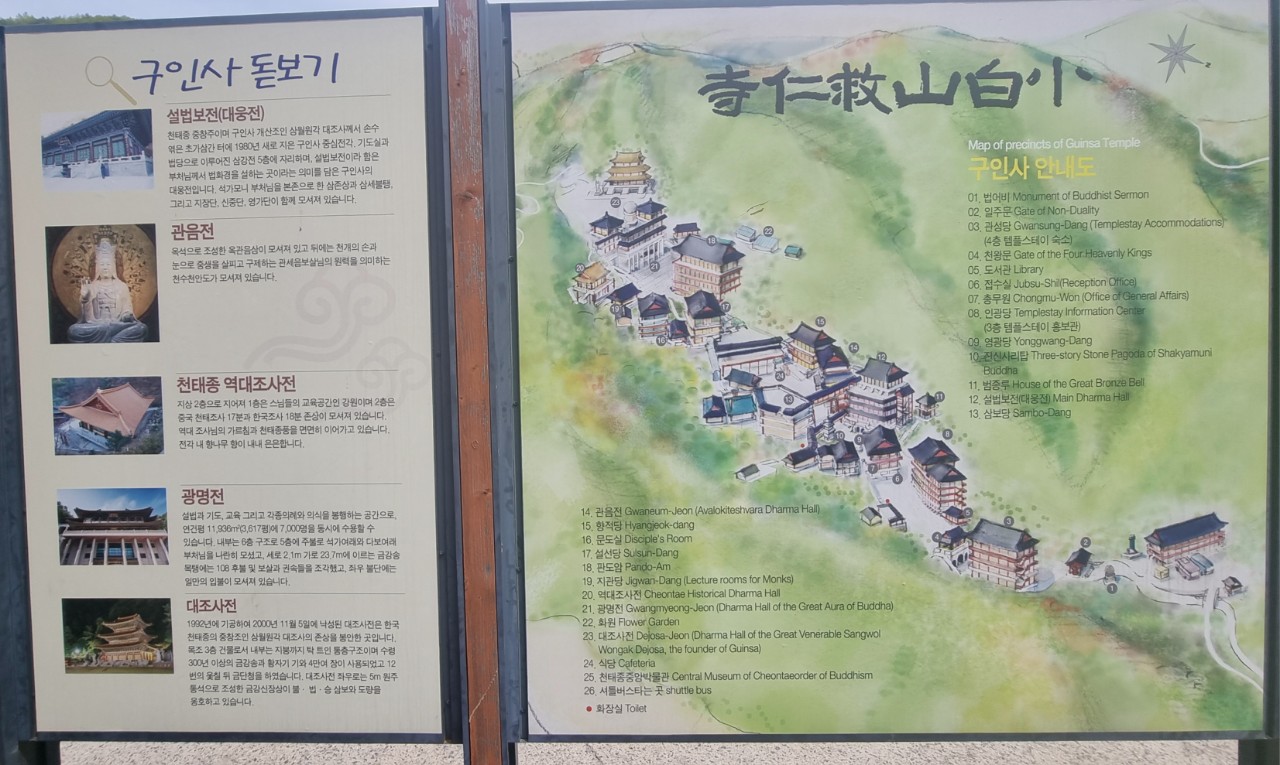 구인사 돋보기
설법보전(대웅전)
천태종 중창주이며 구인사 개산조인 상월원각 대조사께서 손수
엮은 초가삼간 터에 1980년 새로 지은 구인사 중심전각, 기도실과
법당으로 이루어진 삼강전 5층에 자리하며, 설법보전이라 함은
부처님께서 법화경을 설하는 곳이라는 의미를 담은 구인사의
대웅전입니다. 석가모니 부처님을 본존으로 한 삼존상과 삼세불탱,
그리고 지장단, 신중단, 영가단이 함께 모셔져 있습니다.
관음전
옥석으로 조성한 옥관음상이 모셔져 있고 뒤에는 천개의 손과
눈으로 중생을 살피고 구제하는 관세음보살님의 원력을 의미하는
천수천안도가 모셔져 있습니다.
천태종 역대조사전
지상 2층으로 지어져 1층은 스님들의 교육공간인 강원이며 2층은
중국 천태조사 17분과 한국조사 18분 존상이 모셔져 있습니다.
역대 조사님의 가르침과 천태종풍을 면면히 이어가고 있습니다.
전각 내 향나무 향이 내내 은은합니다.
광명전
설법과 기도, 교육 그리고 각종의례와 의식을 봉행하는 공간으로,
연건평 11,936m²(3,617평)에 7,000명을 동시에 수용할 수
있습니다. 내부는 6층 구조로 5층에 주불로 석가여래와 다보여래
부처님을 나란히 모셨고, 세로 2.1m 가로 23.7m에 이르는 금강송
목탱에는 108 후불 및 보살과 권속들을 조각했고, 좌우 불단에는
일만의 입불이 모셔져 있습니다.
대조사전
1992년에 기공하여 2000년 11월 5일에 낙성된 대조사전은 한국
천태종의 중창조인 상월원각 대조사의 존상을 봉안한 곳입니다.
목조 3층 건물로서 내부는 지붕까지 탁 트인 통층구조이며 수령
300년 이상의 금강송과 황자기 기와 4만여 장이 사용되었고 12
번의 옻칠 뒤 금단청을 하였습니다. 대조사전 좌우로는 5m 원주
통석으로 조성한 금강신장상이 불 · 법 · 승 삼보와 도량을
옹호하고 있습니다.
寺仁救山白小
Map of precincts of Guinsa Temple
구인사 안내도
01. 법어비 Monument of Buddhist Sermon
02. 일주문 Gate of Non-Duality
03. 관성당 Gwansung-Dang (Templestay Accommodations)
(4층 템플스테이 숙소)
04. 천왕문 Gate of the Four Heavenly Kings
05. 도서관 Library
06. 접수실 Jubsu-Shil(Reception Office)
07. 총무원 Chongmu-Won (Office of General Affairs)
08. 인광당 Templestay Information Center
(3층 템플스테이 홍보관)
09. 영광당 Yonggwang-Dang
10. 진신사리탑 Three-story Stone Pagoda of Shakyamuni
Buddha
11. 범종루 House of the Great Bronze Bell
12. 설법보전(대웅전) Main Dharma Hall
13. 삼보당 Sambo-Dang
14. 관음전 Gwaneum-Jeon (Avalokiteshvara Dharma Hall)
15. 향적당 Hyangjeok-dang
16. 문도실 Disciple's Room
17. 설선당 Sulsun-Dang
18. 판도암 Pando-Am
19. 지관당 Jigwan-Dang (Lecture rooms for Monks)
20. 역대조사전 Cheontae Historical Dharma Hall
21. 광명전 Gwangmyeong-Jeon (Dharma Hall of the Great Aura of Buddha)
22. 화원 Flower Garden
23. 대조사전 Dejosa-Jeon (Dharma Hall of the Great Venerable Sangwol
Wongak Dejosa, the founder of Guinsa)
24. 식당 Cafeteria
25. 천태종중앙박물관 Central Museum of Cheontaeorder of Buddhism
26. 셔틀버스타는 곳 shuttle bus
화장실 Toilet